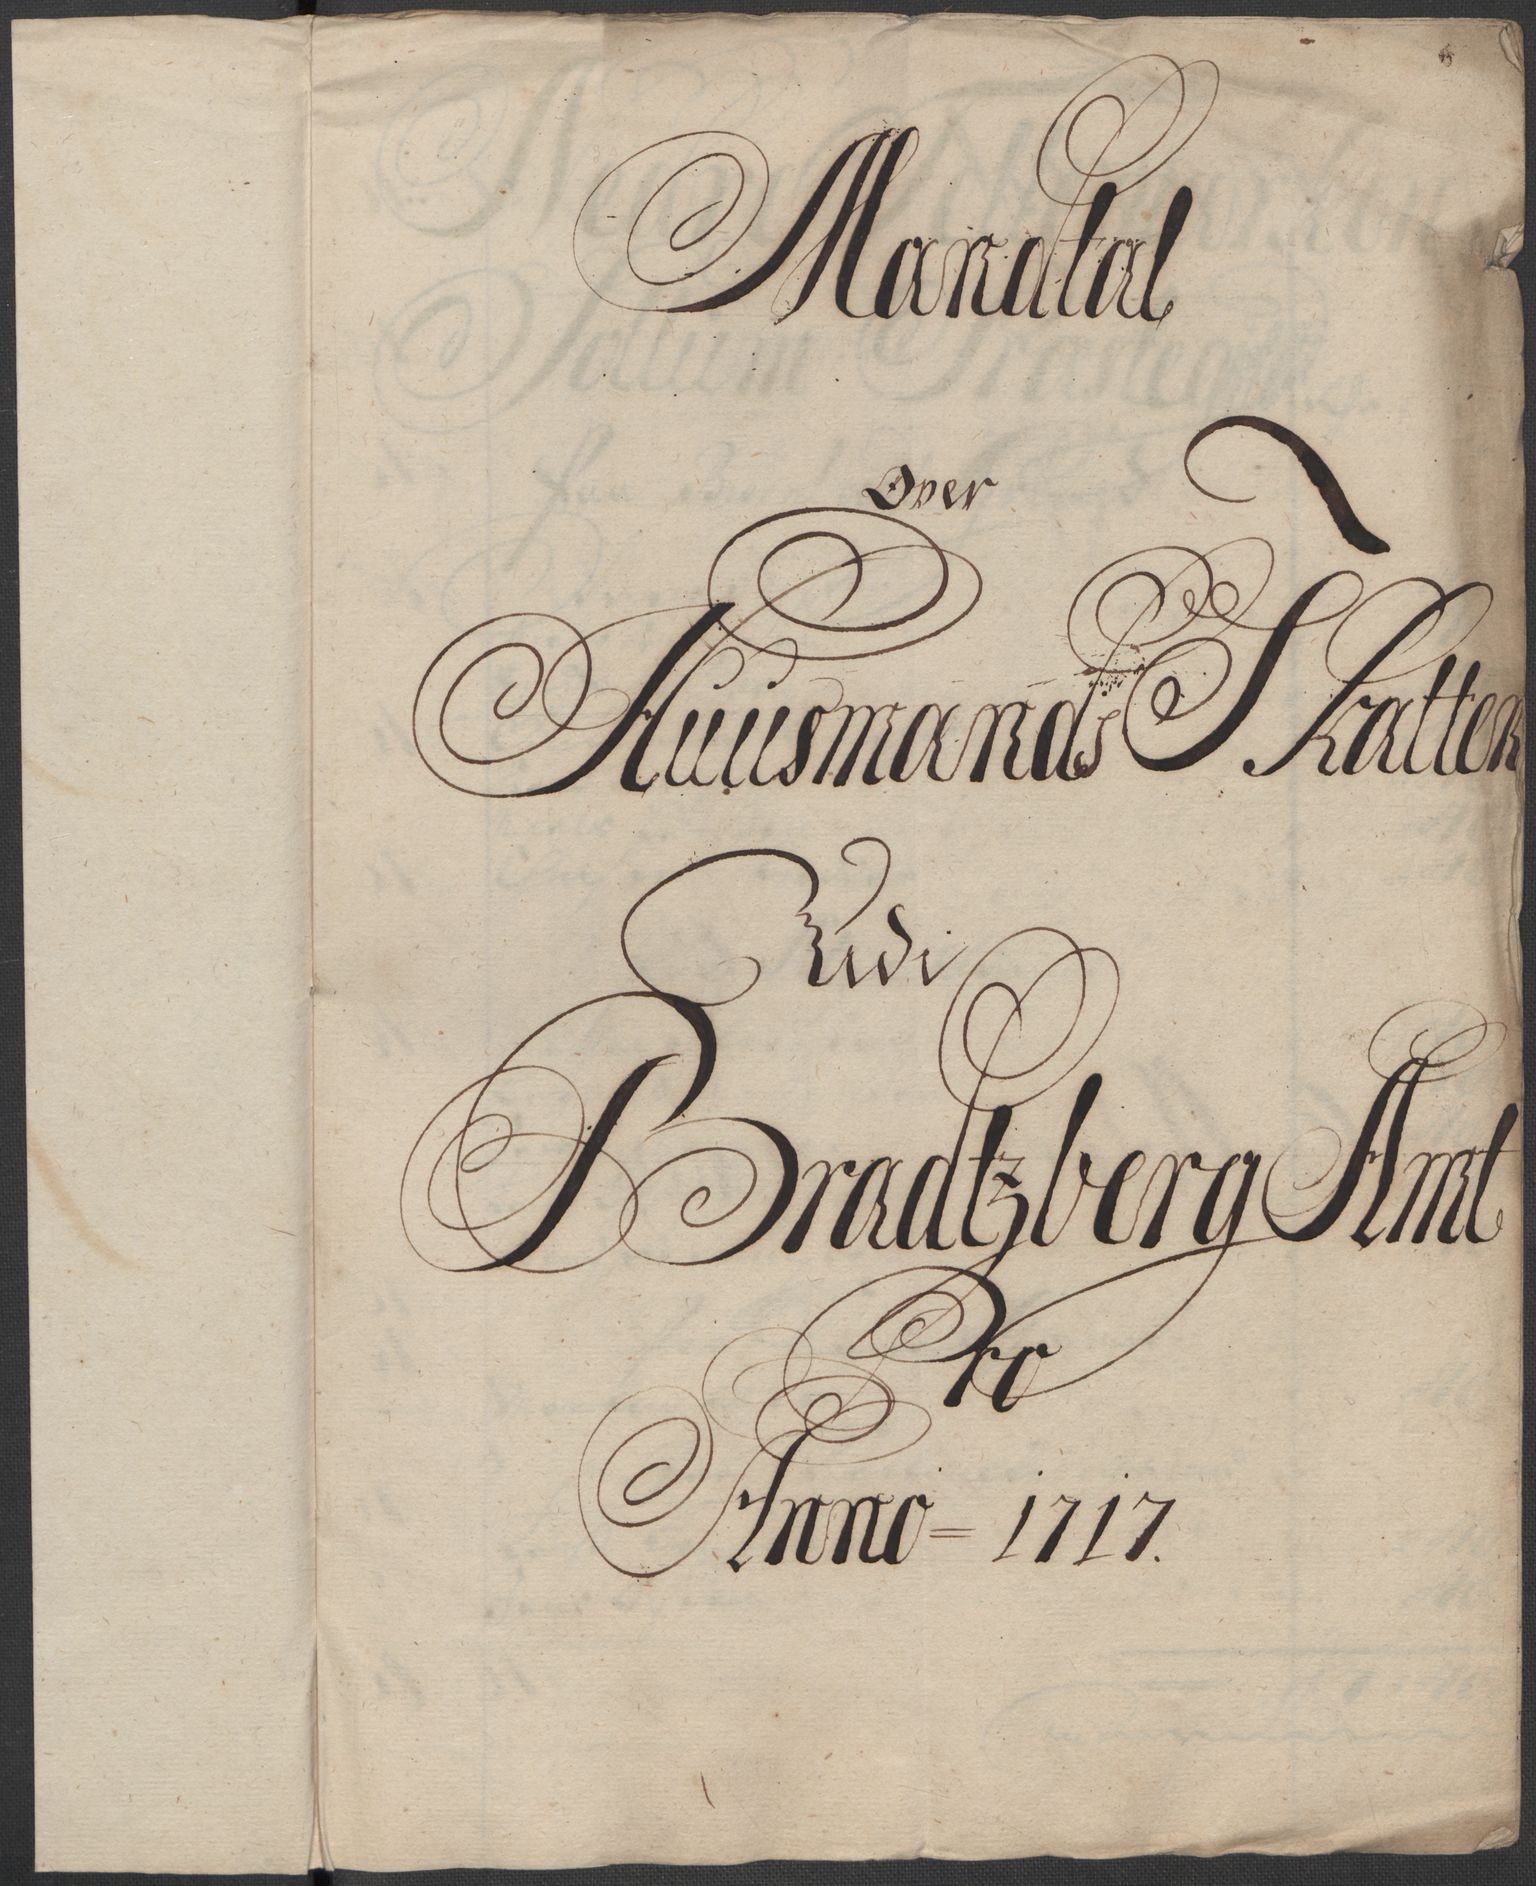 Mandtal
Over
Huusmands Skatten
Udi
Bradtzberg Amt
Pro
Anno = 1717.